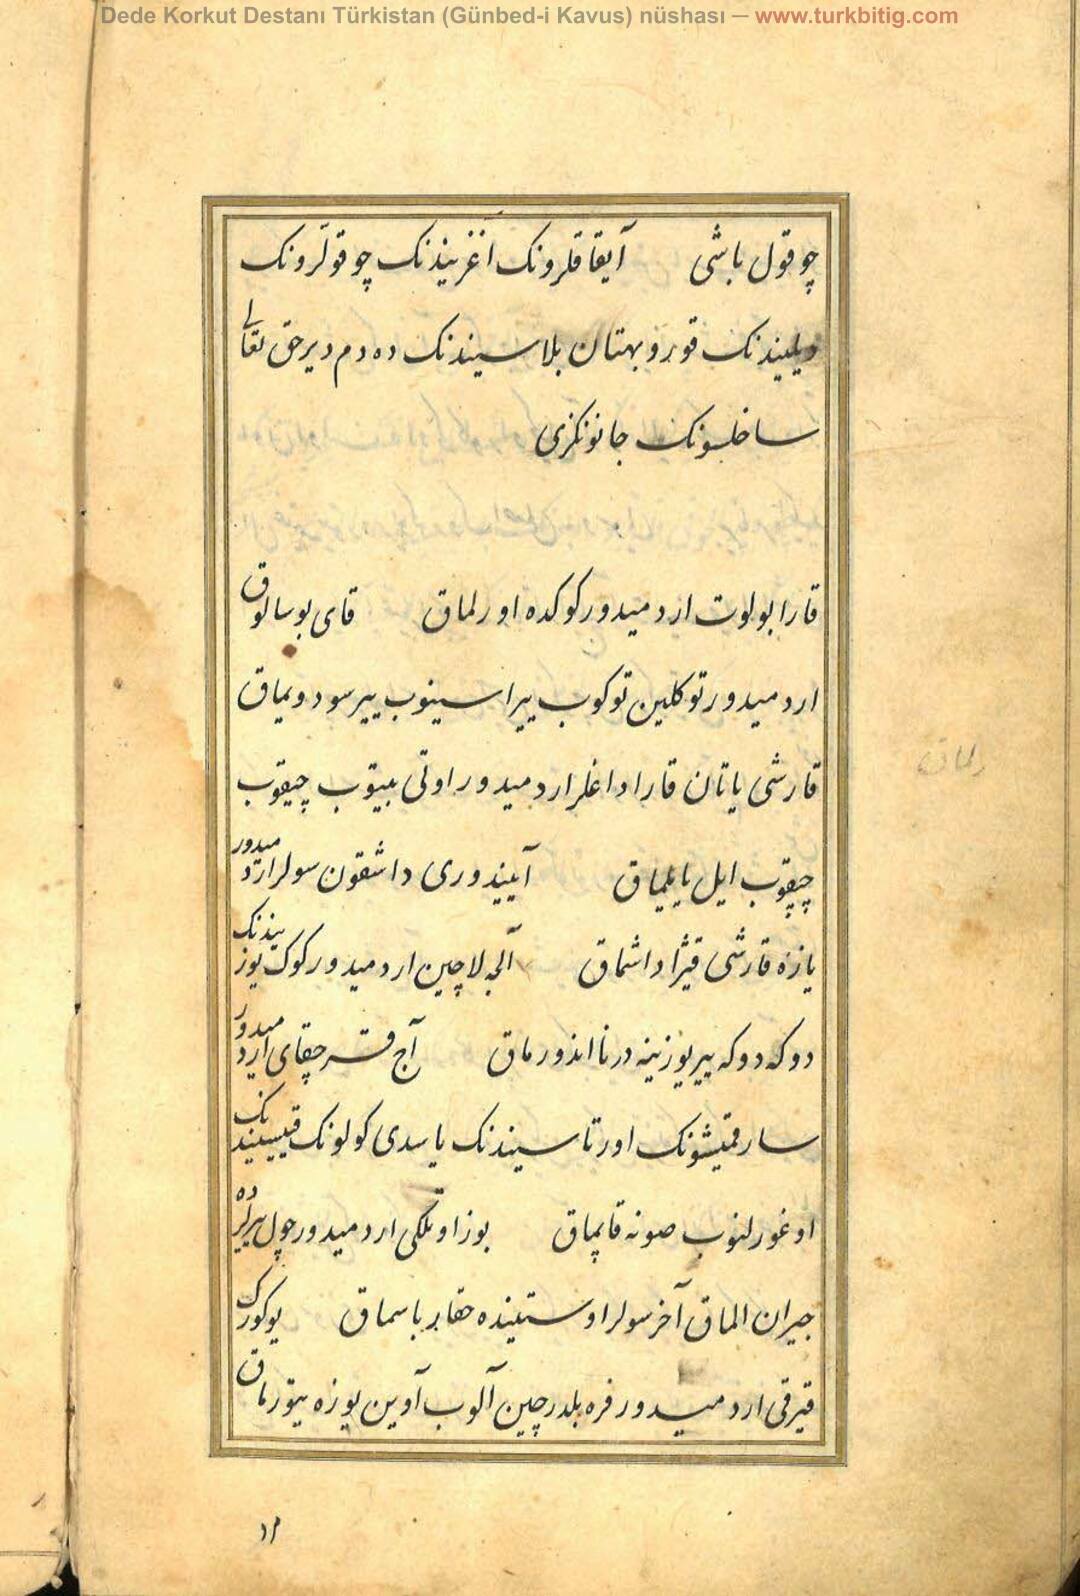 Dede Korkut Destanı Türkistan (Günbed-i Kavus) nüshası — www.turkbitig.com
چوقول باشی آیقاقلرونک آغزیندنک چوقولرونک
دیلیندنک قورو بهتان بلاسیندنک ده دم دیر حق تعالی
ساخلسونک جانونکزی
قارا بولوت ارد میدور کوکده اورلماق قای بوسالوق
ارد میدور توکلین توکوب ییراسینوب ییرسودویماق
قارشی یاتان قارا داغلر ارد میدور اوتی بیتوب چیقوب
چیقوب ایل یایلیماق آییندوری داشقون سولر ارد میدور
یازه قارشی قیژا داشماق آلجه لاچین ارد میدور کوک یوزیندنک
دوکه دوکه ییر یوزینه درنا اندورماق آج قسر چقای ارد میدور
سارقمیشونک اورتاسیندنک یاسدی کولونک قییسیندنک
اوغورلنوب صونه قاپماق بوز اوتلکی ارد میدور چول ییرلرده
جیران الماق آخر سولر اوستینده حقار باسماق یوکورک
قیرقی ارد میدور فره بلدرچین آلوب آوین یوزه یتورماق
الماق
۱۳